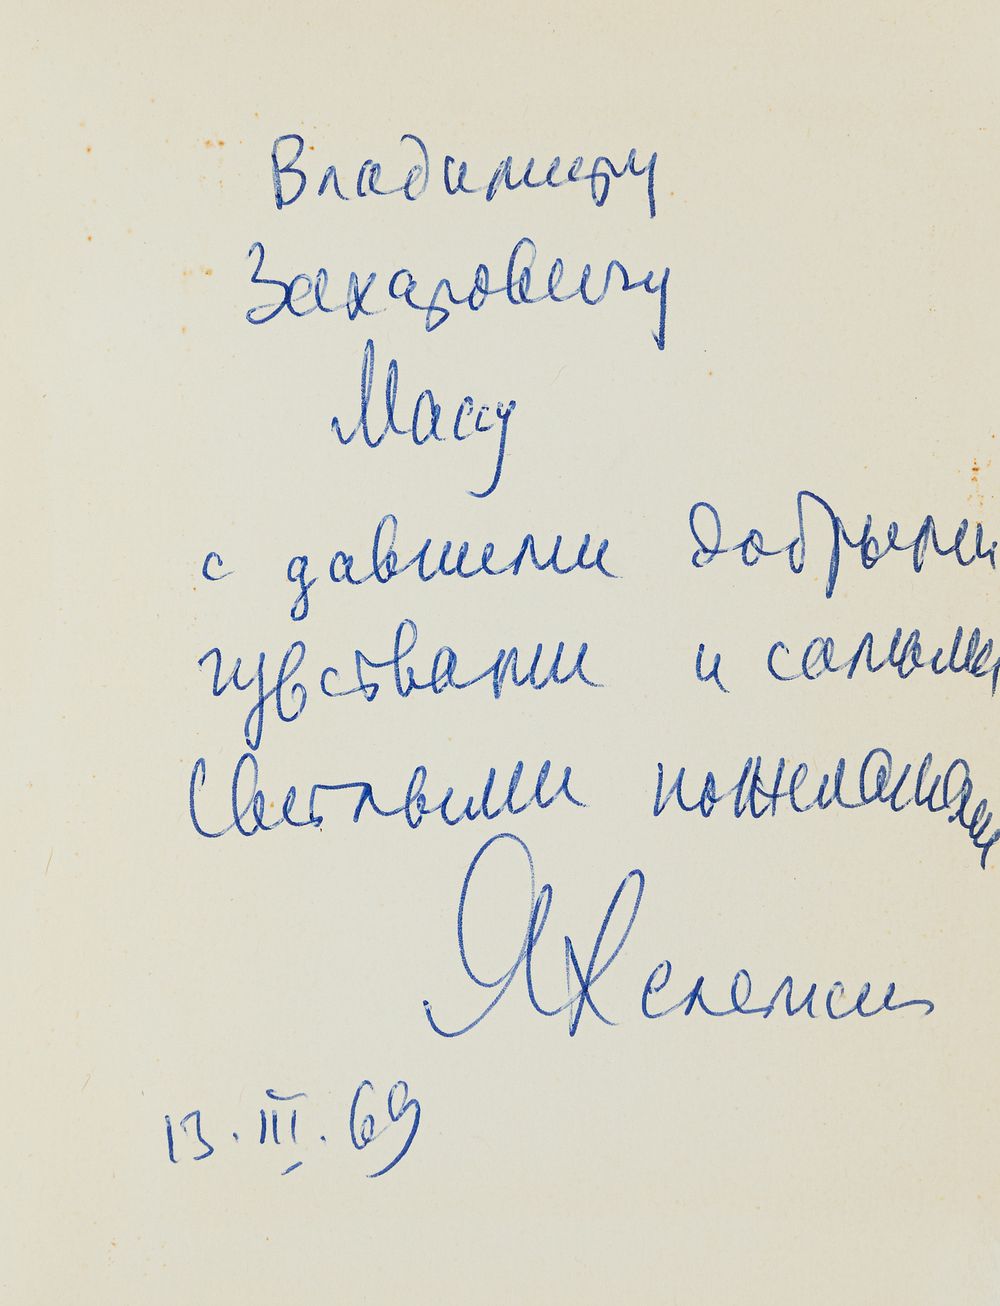 Владимиру
Захаровичу
Массу
с давними добрыми
чувствами и самыми
светлыми пожеланиями
ЯХелемский
13.III.69